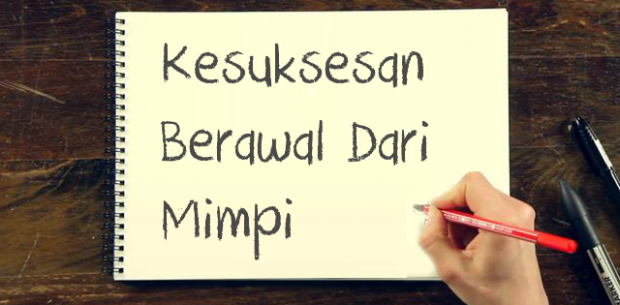 Kesuksesan
Berawal Dari
Mimpi